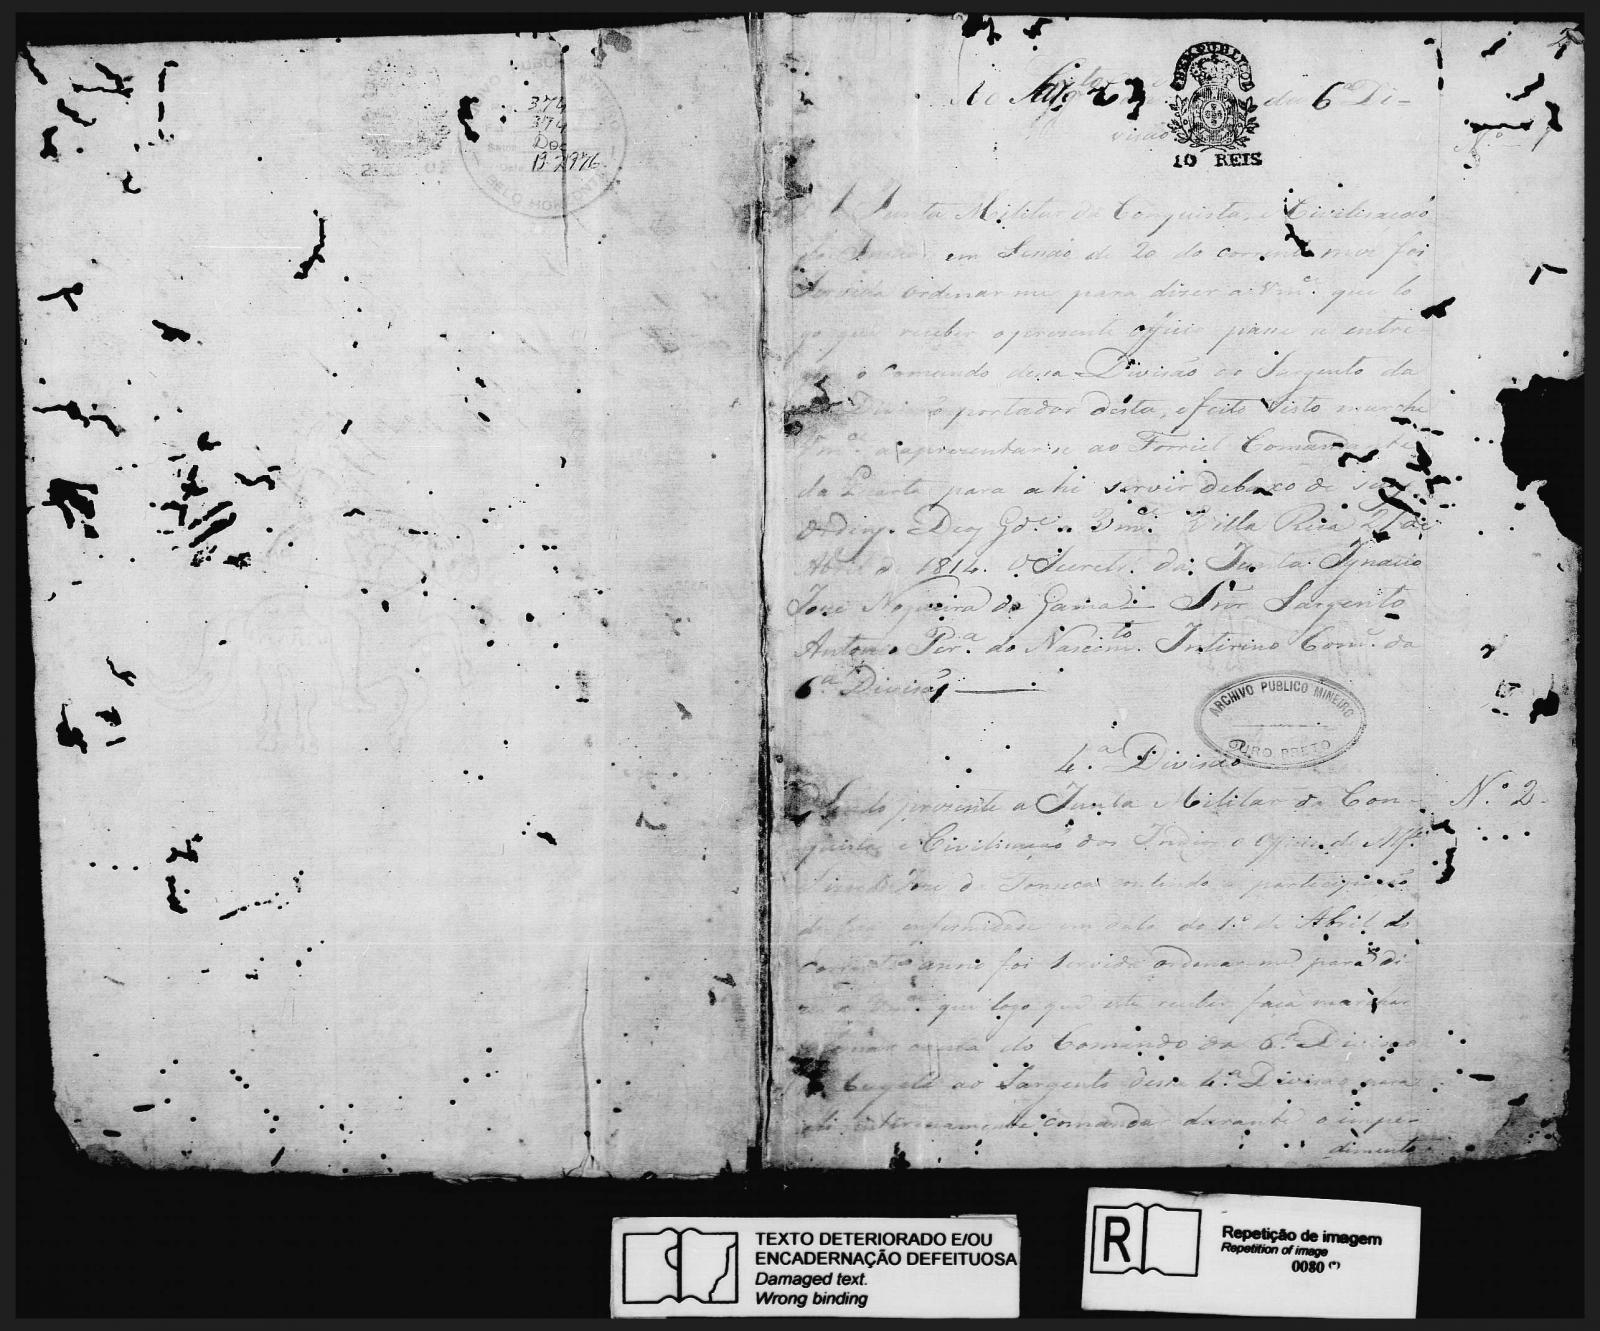 374
374
Dec
BELO HORIZONTE
10 REIS
da 6ª Di-
visão
Nº 1
A Junta Militar da Conquista, e Civilisação
dos Indios em Sessão de 20 do corrente mez foi
servida ordenar me para dizer a Vmce. que lo
go que receber o presente officio passe a entre-
o comando dessa Divisão ao Sargento da
Divisão portador desta, e feito isto marche
Vmce. a aprezentar se ao Forriel Comandante
da Quarta para ahi servir debaxo de suas
ordens. Deos Gde. a Vmce. Villa Rica 21 de
Abril de 1814. O Secretr. da Junta Ignacio
José Nogueira da Gama = Snr Sargento
Antonio Per.ª do Nascimto. Intirino Com. da
6.ª Divisão
ARCHIVO PUBLICO MINEIRO
OURO PRETO
4.ª Divisão
Sendo prezente a Junta Militar da Con-
N.º 2
quista e Civilisação dos Indios o officio do Alfs.
José da Fonseca contendo a participação
de sua enfermidade em data do 1.º de Abril do
corrente anno foi servida ordenar me para di
zer a Vmce. que logo que este receber faça marchar
a tomar conta do Comando da 6.ª Divisão
ao Sargento dessa 4.ª Divisão para
interinamente comandar durante o impe-
dimento
TEXTO DETERIORADO E/OU
ENCADERNAÇÃO DEFEITUOSA
Damaged text.
Wrong binding
R
Repetição de imagem
Repetition of image
0080 (*)